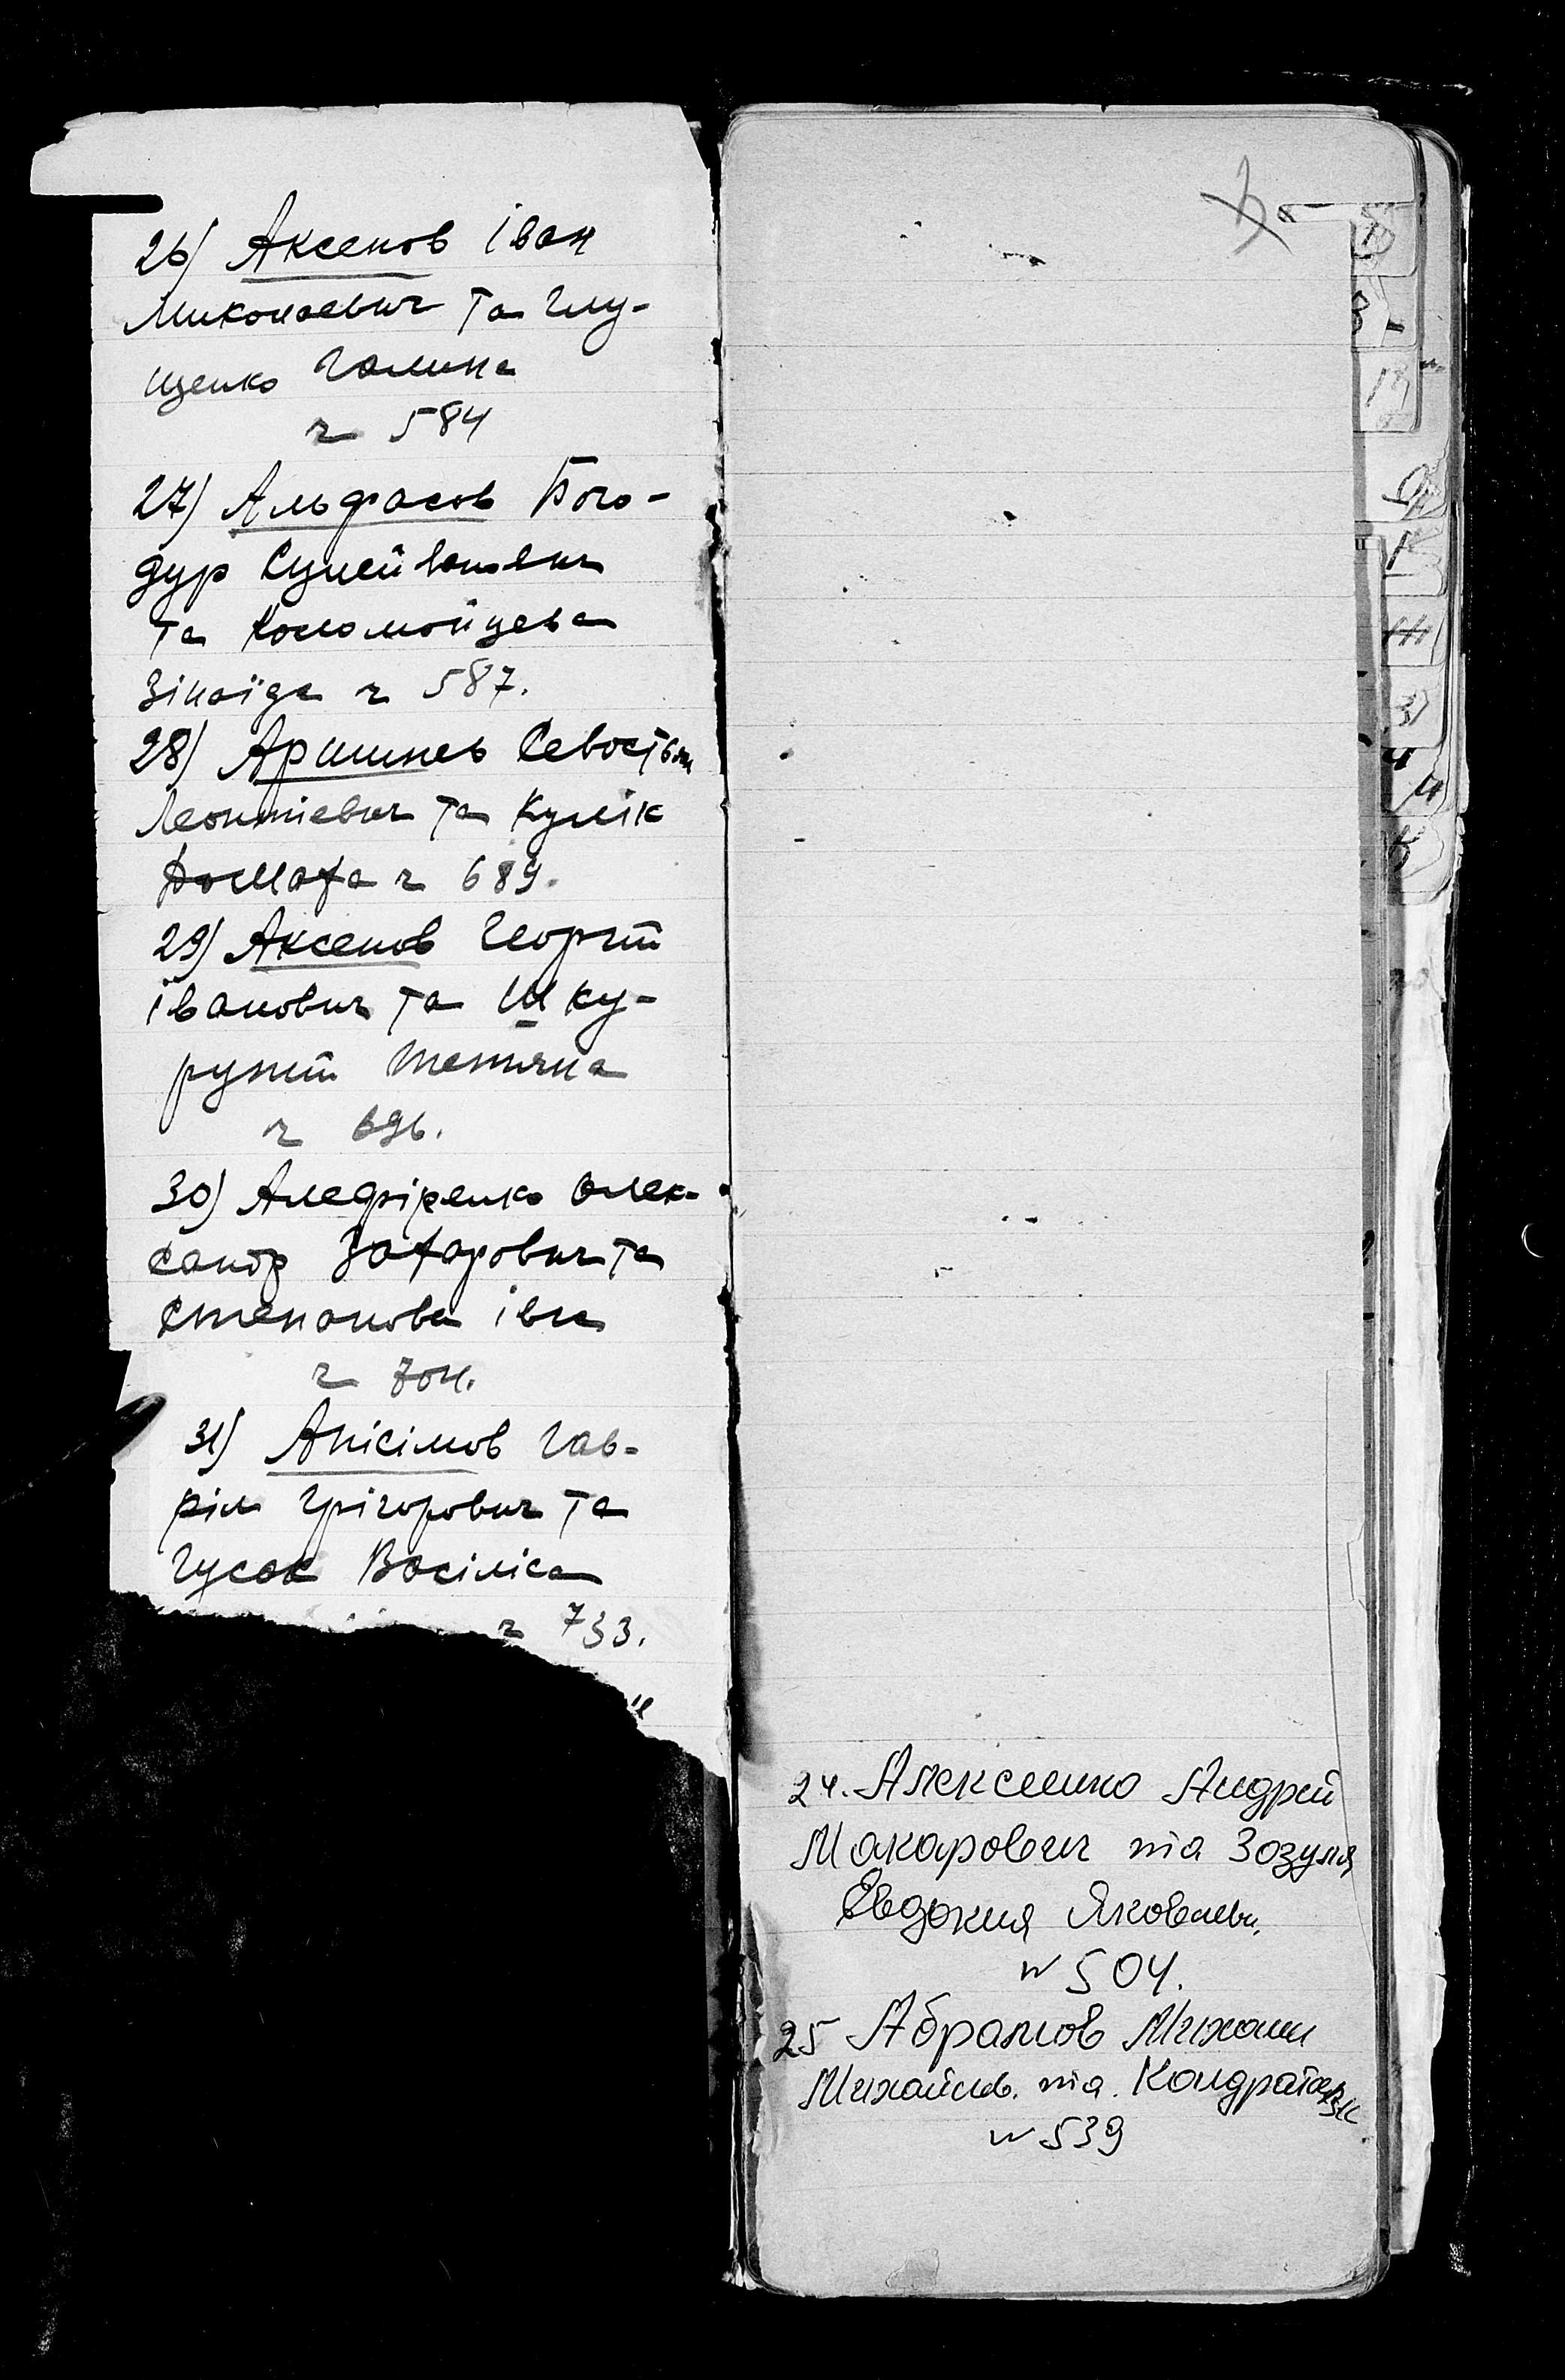 26) Аксенов Іван
Миколаевич та Глу-
щенко Галина
ч 584
27) Альфасов Бого-
дур Сулейванович
та Коломойцева
Зінаїда ч 587.
28) Аришнев Севостьян
Леонтієвич та Кулік
ч 689.
29) Аксенов Георгій
Іванович та Шку-
рупій Тетяна
ч 696.
30) Алефіренко Олек-
сандр Захарович та
Степанова Іва
ч 704.
31) Анісімов Гав-
ріл Грігорович та
Гусак Васіліса
ч 733.
24. Алексеенко Андрей
Макарович та Зозуля
Евдокия Яковлевн.
№ 504.
25 Абрамов Михаил
Михайлов. та. Кондрате
№ 539
В